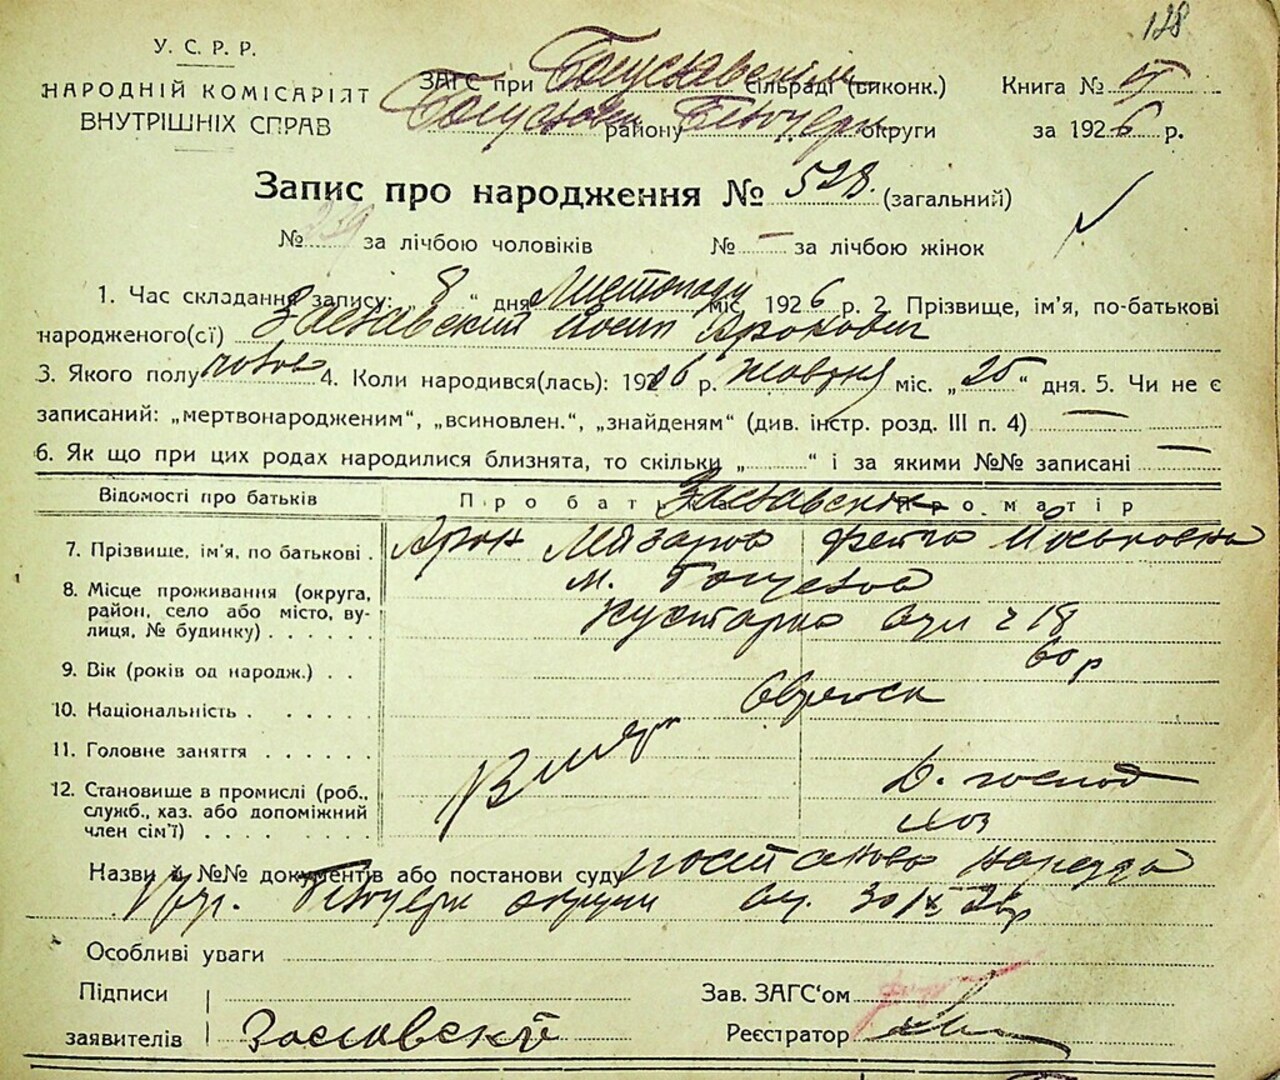 128
У. С. Р. Р.
НАРОДНІЙ КОМІСАРІЯТ
ВНУТРІШНІХ СПРАВ
ЗАГС при Богуславськім сільраді (виконк.)
Богуславськ району Білоцерк округи
Книга № V
за 1926 р.
Запис про народження № 528. (загальний)
№ 239 за лічбою чоловіків № – за лічбою жінок
1. Час складання запису: „ 8 “ дня Листопаду міс. 1926 р. 2. Прізвище, ім'я, по-батькові
народженого(сї) Заславский Йосип Аронович
3. Якого полу чолов 4. Коли народився(лась): 1906 р. жовтня міс. „ 25 “ дня. 5. Чи не є
записаний: „мертвонародженим“, „всиновлен.“, „знайденям“ (див. інстр. розд. III п. 4) —
6. Як що при цих родах народилися близнята, то скільки „ “ і за якими №№ записані —
Відомості про батьків Про батька Про матір
Заславські
7. Прізвище, ім'я, по батькові . Арон Лейзаров Фейга Йоськовна
8. Місце проживання (округа, район, село або місто, вулиця, № будинку) . . . . . .
м. Богуслав
Кустарна вул ч 18
9. Вік (років од народж.) . . 60 р
10. Національність . . . . . . Єврейск
11. Головне заняття . . . . . . Вмер
12. Становище в промислі (роб., служб., хаз. або допоміжний член сім'ї) . . . . .
д. господ
хоз
Назви й №№ документів або постанови суду постанова Нарсуда
Білоцерк округи від 30/IX 26р
Особливі уваги
Підписи заявителів Заславский
Зав. ЗАГС'ом
Реєстратор